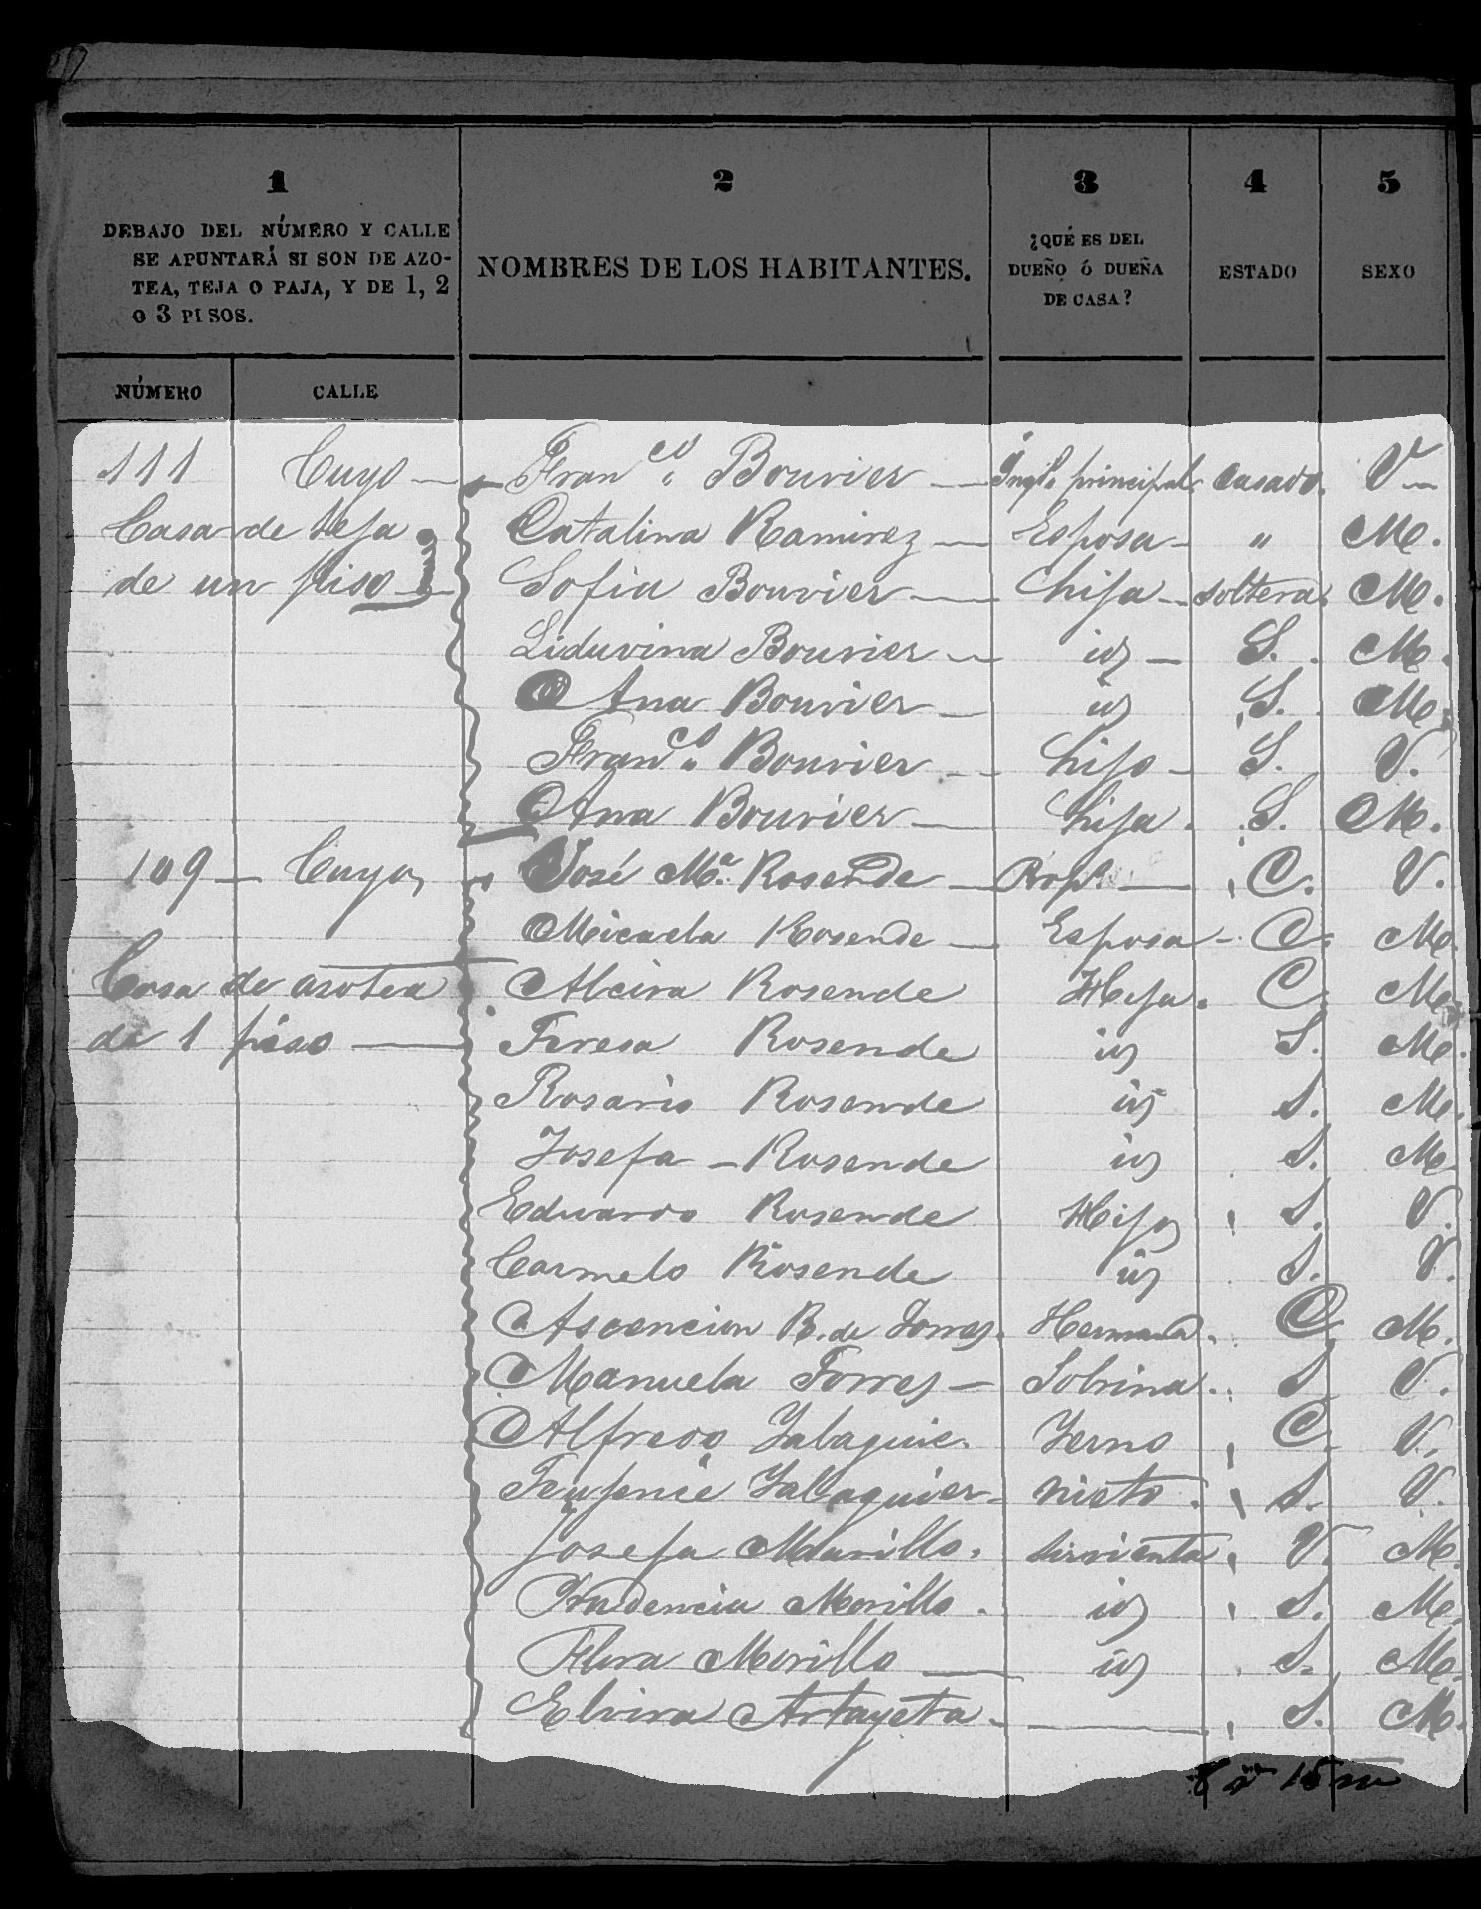 1 2 3 4 5
DEBAJO DEL NÚMERO Y CALLE
SE APUNTARÁ SI SON DE AZO-
TEA, TEJA O PAJA, Y DE 1, 2
O 3 PISOS.
NOMBRES DE LOS HABITANTES.
¿QUÉ ES DEL
DUEÑO Ó DUEÑA
DE CASA?
ESTADO
SEXO
NÚMERO CALLE
111 Cuyo — Franco Bouvier — Inqo principal casado. V—
Casa de teja Catalina Ramirez — Esposa — " M.
de un piso — Sofia Bouvier — hija — soltera. M.
Liduvina Bouvier — id — S. M.
Ana Bouvier — id S. M.
Franco Bouvier — hijo — S. V.
Ana Bouvier — hija. S. M.
109 — Cuyo, José Ma. Rosende — Prop — C. V.
Micaela Rosende — Esposa — C. M.
Casa de azotea Alcira Rosende Hija. C. M.
de 1 piso — Teresa Rosende id S. M.
Rosario Rosende id S. M.
Josefa — Rosende id S. M
Eduardo Rosende Hijo S. V.
Carmelo Rosende id S. V.
Ascencion R. de Torres. Hermana. C. M.
Manuela Torres — Sobrina. S V.
Alfredo Yalaguie. Yerno C. V.
Yalaguier — nieto. S. V.
Josefa Murillo. sirvienta. V. M.
Prudencia Morillo. id S. M.
Flora Morillo — id S. M.
Elvira Artayeta. — S. M.
8 v 15 m